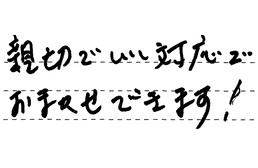 親切でいい対応で
おまかせできます!